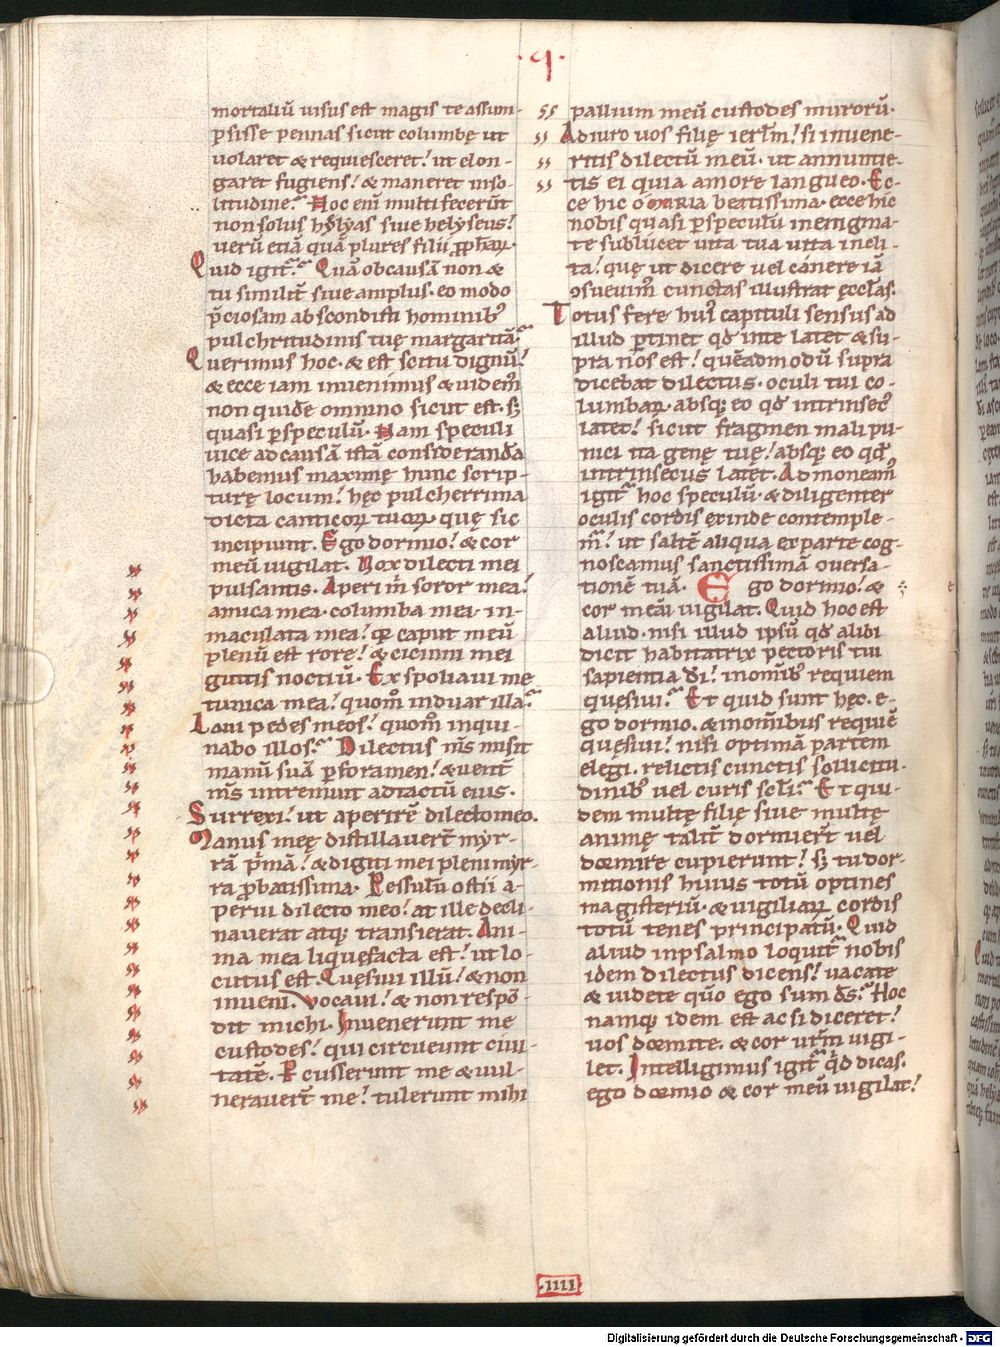 ·q·
mortaliū uisus est magis te assum-
psisse pennas sicut columbę ut
uolaret & requiesceret? ut elon-
garet fugiens? & maneret inso-
litudine? Hoc eni multi fecerūt
non solus helyas siue helyseus?
uerū etiā quā plures filii pphaꝝ.
Quid igit? Quā obcausā non &
tu similit siue amplius eo modo
p̄ciosam abscondisti hominib;
pulchritudinis tuę margaritā?
Querimus hoc. & est scitu dignū?
& ecce iam inuenimus & uidem
non quidē omnino sicut est. s;
quasi p speculū. Nam speculi
uice ad causā istā consideranda
habemus maxime hunc scrip-
turę locum? hęc pulcherrima
dicta canticoꝝ tuoꝝ. quę sic
incipiunt. Ego dormio? & cor
meū uigilat. Vox dilecti mei
pulsantis. Aperi m soror mea?
amica mea. columba mea in-
maculata mea? q caput meū
plenū est rore? & cicinni mei
guttis noctiū. Expoliaui me
tunica mea? quom induar illa?
Laui pedes meos? quom inqui-
nabo illos? Dilectus ms misit
manū suā p foramen? & uent
ms intremuit ad tactū eius.
Surrexi? ut aperirē dilecto meo.
Manus meę distillauert myr-
rā p̄mā? & digiti mei pleni myr-
ra pbatissima. Pessulū ostii a-
perui dilecto meo? at ille decli-
nauerat atq; transierat. Ani-
ma mea liquefacta est? ut lo-
cutus est. Quęsiui illū? & non
inueni. Vocaui? & non respō-
dit michi. Inuenerunt me
custodes? qui circueunt ciui-
tatē. Pcusserunt me & uul-
nerauert me? tulerunt mihi
pallium meū custodes muroꝝ.
Adiuro uos filię ierlm? si inuene-
ritis dilectū meū. ut annuntie-
tis ei quia amore langueo. Ec-
ce hic o maria beatissima. ecce hic
nobis quasi p speculū in enigma-
te sublucet uita tua uita incli-
ta? quę ut dicere uel canere iā
osueuim cunctas illustrat ęcclas.
Totus fere hui capituli sensus ad
illud ptinet qd inte latet & su-
pra nos est? quēadmodū supra
dicebat dilectus. oculi tui co-
lumbaꝝ. absq; eo qd intrinsec
latet? sicut fragmen mali pu-
nici ita genę tuę? absq; eo qd
intrinsecus latet. Admoneam
igit hoc speculū. & diligenter
oculis cordis exinde contemple-
m? ut saltē aliqua ex parte cog-
noscamus sanctissimā ouersa-
tionē tuā. Ego dormio? &
cor meum uigilat. Quid hoc est
aliud. nisi illud ipsū qd alibi
dicit habitatrix pectoris tui
sapientia di? in omib; requiem
quęsiui? Et quid sunt hęc. e-
go dormio. & in omibus requiē
quęsiui? nisi optimā partem
elegi. relictis cunctis sollicitu-
dinib; uel curis scli? Et qui-
dem multę filię siue multę
animę talit dormiert uel
dormire cupierunt? s; tu dor-
mitionis huius totū optines
magisteriū. & uigiliaꝝ cordis
totū tenes principatū. Quid
aliud in psalmo loquit nobis
idem dilectus dicens? uacate
& uidete quo ego sum ds? Hoc
namq; idem est ac si diceret?
uos dormite. & cor urm uigi-
let. Intelligimus igit qd dicas.
ego dormio & cor meū uigilat?
·IIII·
Digitalisierung gefördert durch die Deutsche Forschungsgemeinschaft - DFG